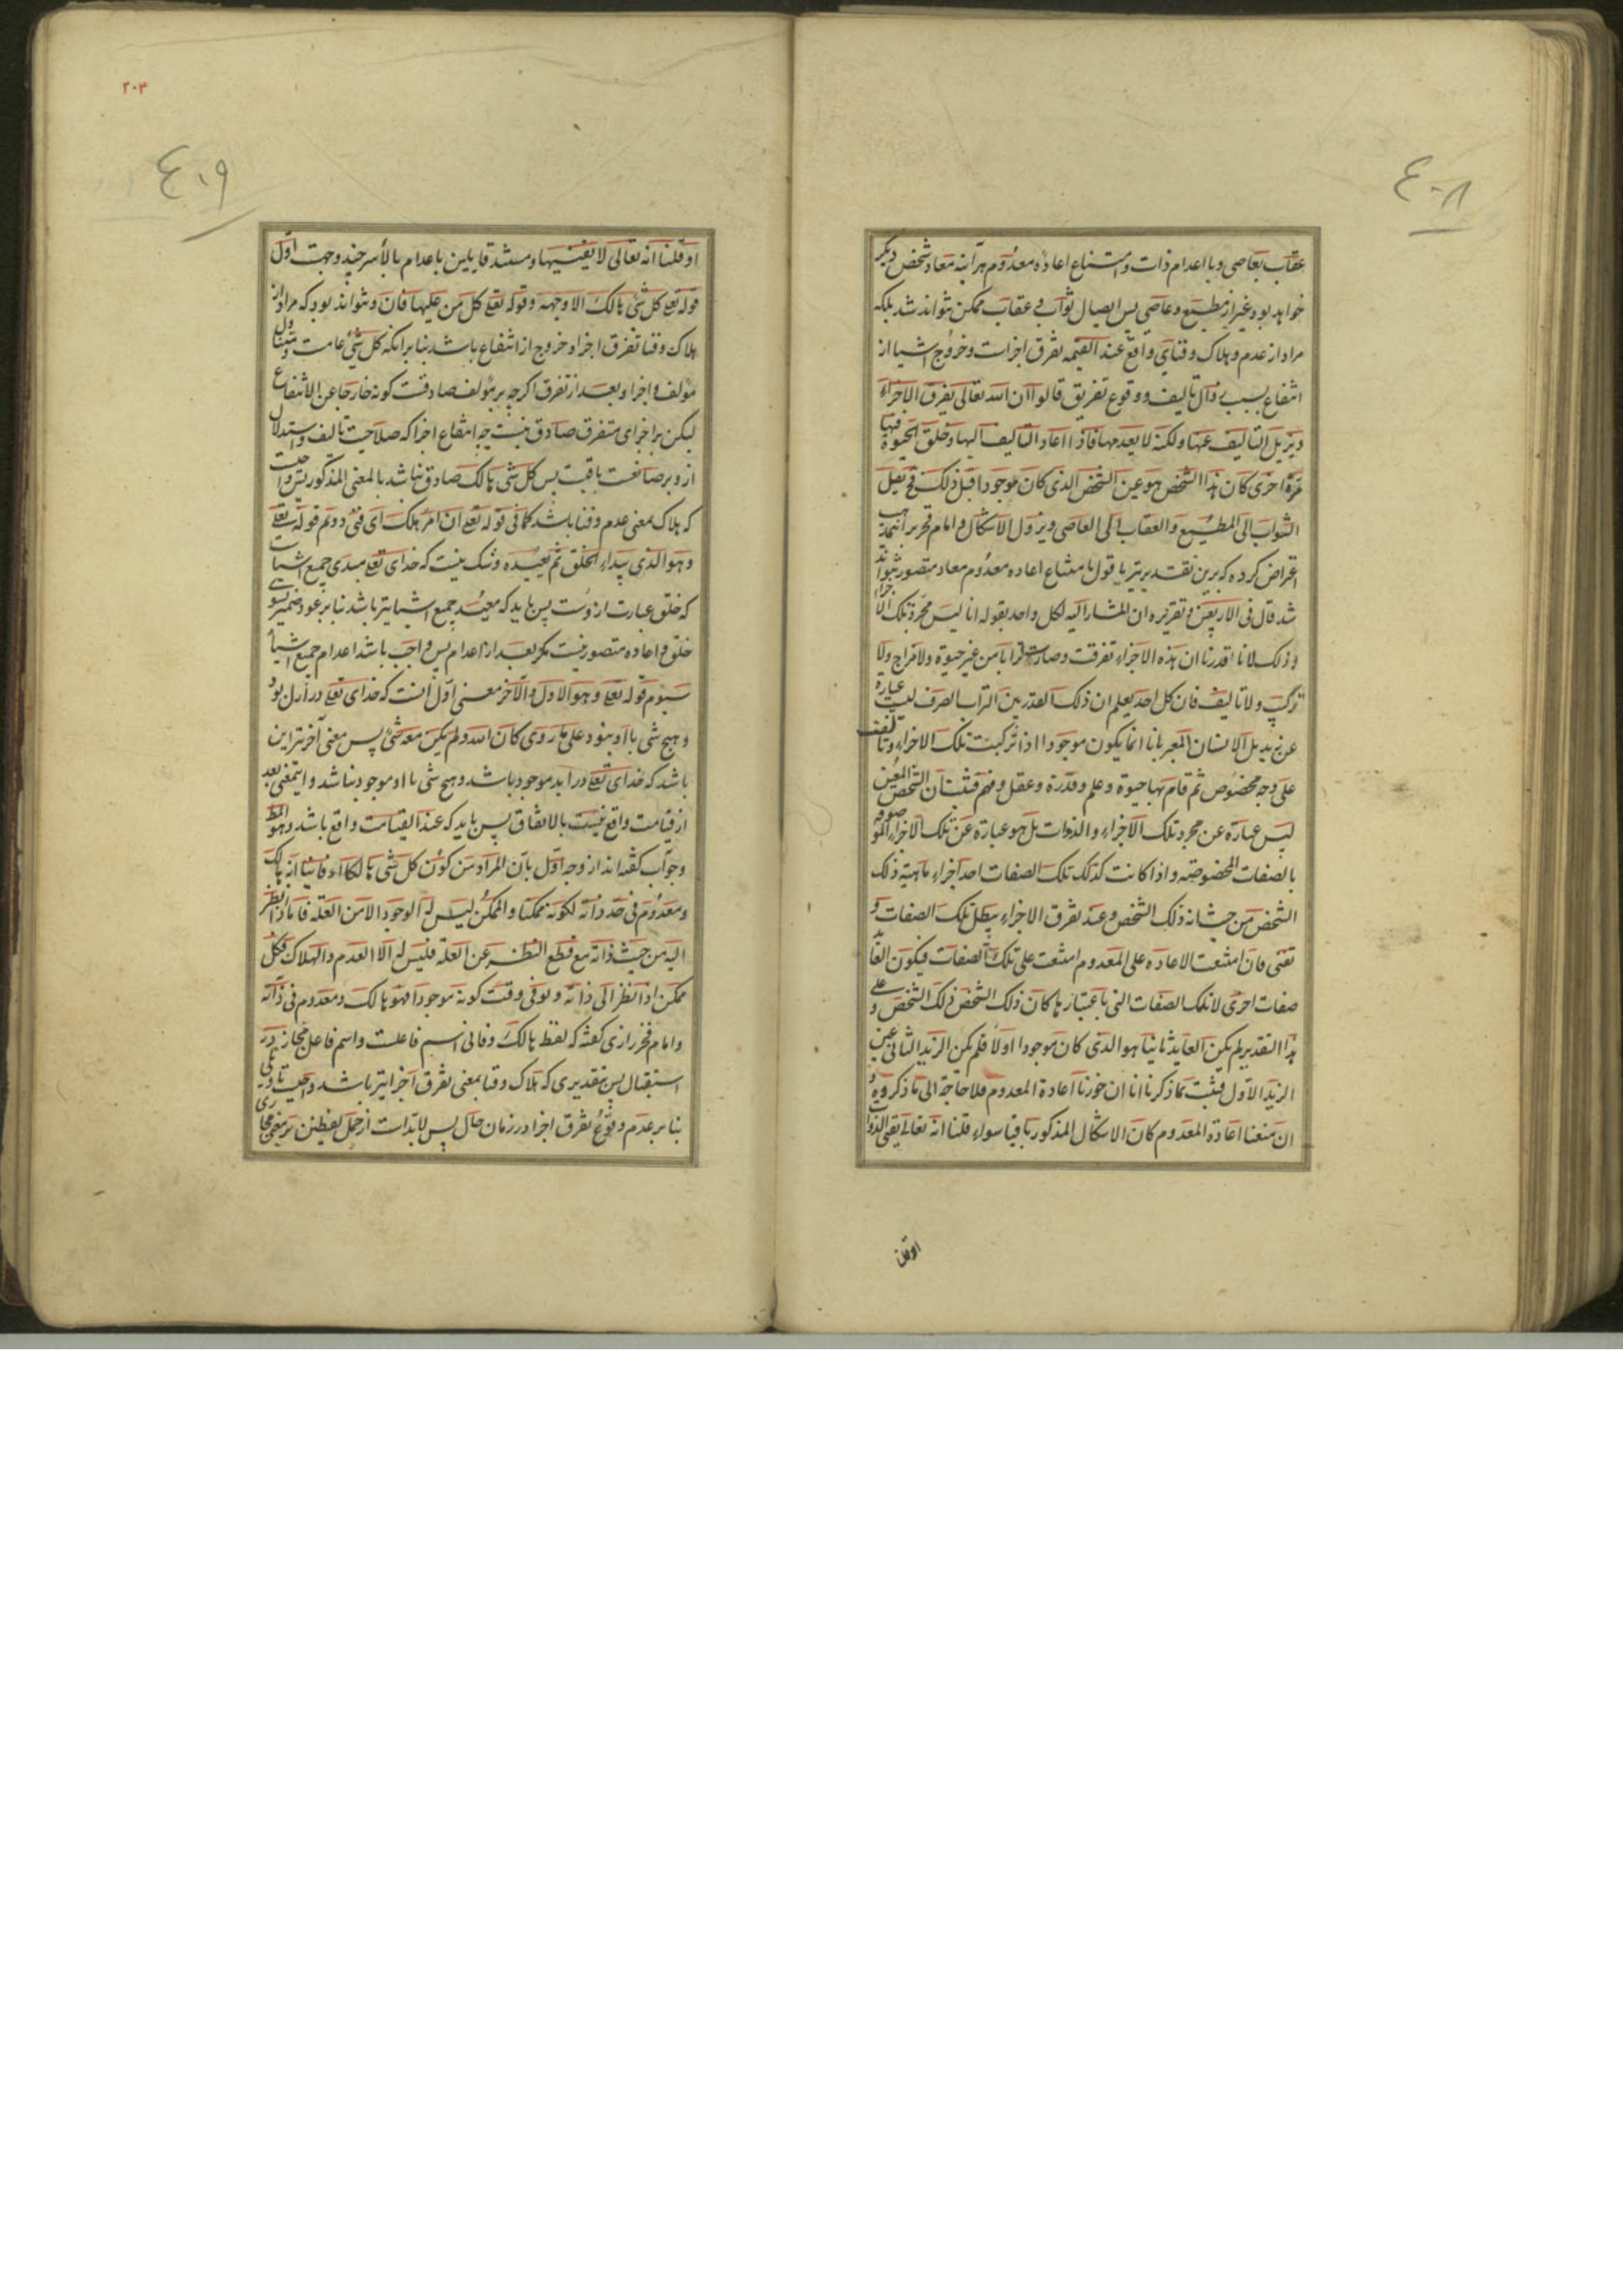 ٤٠٨
عقاب بعاصی وبا اعدام ذات و امتناع اعادۀ معدوم هر آینه معاد شخص دیگر
خواهد بود غیر از مطیع و عاصی پس ایصال ثواب و عقاب ممکن نتواند شد بلکه
مراد از عدم و هلاک و فنای واقع عند القیمه تفرق اجزاست و خروج اشیا از
انتفاع بسبب زوال تالیف و وقوع تفریق قالوا ان الله تعالی یفرق الاجزاء
ویزیل التالیف عنها ولکنه لا یعدمها فاذا اعاد التالیف الیها وخلق الحیوة فیها
مرة اخری کان هذا الشخص هو عین الشخص الذی کان موجودا قبل ذلک فح یصل
الثواب الی المطیع والعقاب الی العاصی ویزول الاشکال و امام فخر بر
اعراض کرده که برین تقدیر نیز با قول بامتناع اعاده معدوم معاد متصور نتواند
شد قال فی الاربعین وتقریره ان المشار الیه لکل واحد بقوله انا لیس مجرد تلک الاجزاء
وذلک لانا اقدرنا ان هذه الاجزاء تفرقت وصارت ترابا من غیر حیوة ولا مزاج ولا
ترکیب ولا تالیف فان کل احد یعلم ان ذلک القدر من التراب الصرف لیست عبارة
عن زید بل الانسان المعبر بانا انما یکون موجودا اذا ترکبت تلک الاجزاء وتالفت
علی وجه مخصوص ثم قام بها حیوة وعلم وقدرة وعقل وفهم فثبت ان الشخص المعین
لیس عبارة عن مجرد تلک الاجزاء والذوات بل هو عبارة عن تلک الاجزاء الموصوفه
بالصفات المخصوصة واذا کانت کذلک تلک الصفات احد اجزاء ماهیته ذلک
الشخص من حیث انه ذلک الشخص وعند تفرق الاجزاء یبطل تلک الصفات و
تفنی فان امتنعت الاعاده علی المعدوم امتنعت علی تلک الصفات فیکون العاید
صفات اخری لا تلک الصفات التی باعتبارها کان ذلک الشخص ذلک الشخص و علی
هذا التقدیر لم یکن العاید ثانیا هو الذی کان موجودا اولا فلم یکن الزید الثانی عین
الزید الاول فثبت بما ذکرنا انا ان جوزنا اعادة المعدوم فلا حاجة الی ما ذکروه و
ان منعنا اعادة المعدوم کان الاشکال المذکور باقیا سواء قلنا انه تعالی یفنی الذوات
او قلنا
٢٠٤
٤٠٩
او قلنا انه تعالی لا یفنیها و مستند قایلین باعدام بالاسر چند وجهت اول
قوله تع کل شئ هالک الا وجهه و قوله تع کل من علیها فان و نتواند بود که مراد از
هلاک و فنا تفرق اجزا و خروج از انتفاع باشد بنا بر آنکه کل شئ عامست و متناول
مؤلف و اجزا و بعد از تفرق اگر چه بر مؤلف صادقست کونه خارجا عن الانتفاع
لیکن بر اجزای متفرق صادق نیست چه انتفاع اجزا که صلاحیت تالیف و استدلال
ازو بر صانعست باقیست پس کل شئ هالک صادق نباشد بالمعنی المذکور پس واجبست
که هلاک بمعنی عدم و فنا باشد کما فی قوله تع ان امرؤ هلک ای فنی دوم قوله تع
وهو الذی یبداء الخلق ثم یعیده و شک نیست که خدای تع مبدی جمیع اشیاست
که خلق عبارت ازوست پس باید که معید جمیع اشیا نیز باشد بنا بر عود ضمیر بسوی
خلق و اعاده متصور نیست مگر بعد از اعدام پس واجب باشد اعدام جمیع اشیا
سیوم قوله تع وهو الاول والآخر معنی اول آنست که خدای تع در ازل بود
و هیچ شی با او نبود علی ما روی کان الله ولم یکن معه شئ پس معنی آخر نیز این
باشد که خدای تع در ابد موجود باشد و هیچ شی با او موجود نباشد و اینمعنی بعد
از قیامت واقع نیست بالاتفاق پس باید که عند القیامت واقع باشد وهو المط
وجواب گفته‌اند از وجه اول بان المراد من کون کل شئ هالکا او فانیا انه هالک
ومعدوم فی حد ذاته لکونه ممکنا والممکن لیس له الوجود الا من العلة فاما اذا انظر
الیه من حیث ذاته مع قطع النظر عن العلة فلیس له الا العدم والهلاک فکل
ممکن اذا نظر الی ذاته ولو فی وقت کونه موجودا فهو هالک ومعدوم فی ذاته
و امام فخر رازی گفته که لفظ هالک و فانی اسم فاعلست و اسم فاعل مجاز در
استقبال پس بتقدیری که هلاک و فنا بمعنی تفرق اجزا نیز باشد واجبست تاویلی
بنا بر عدم وقوع تفرق اجزا در زمان حال پس لابدست از حمل لفظین بر معنی مجازی